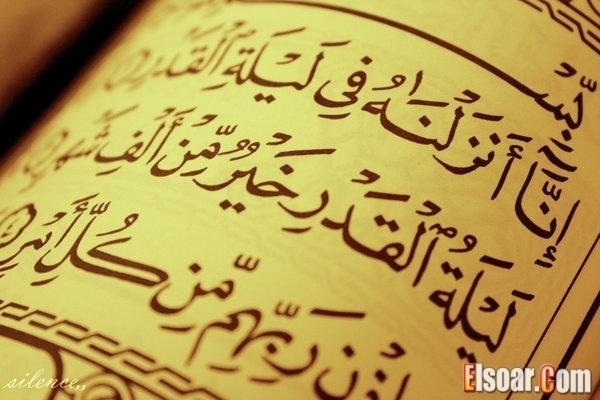 بِّسْ
إِنَّآ أَنزَلْنَٰهُ فِي لَيْلَةِ ٱلْقَدْرِ
لَيْلَةُ ٱلْقَدْرِ خَيْرٌ مِّنْ أَلْفِ شَهْرٍ
رَبِّهِم مِّن كُلِّ أَمْرٍ
silence,,
Elsoar.Com